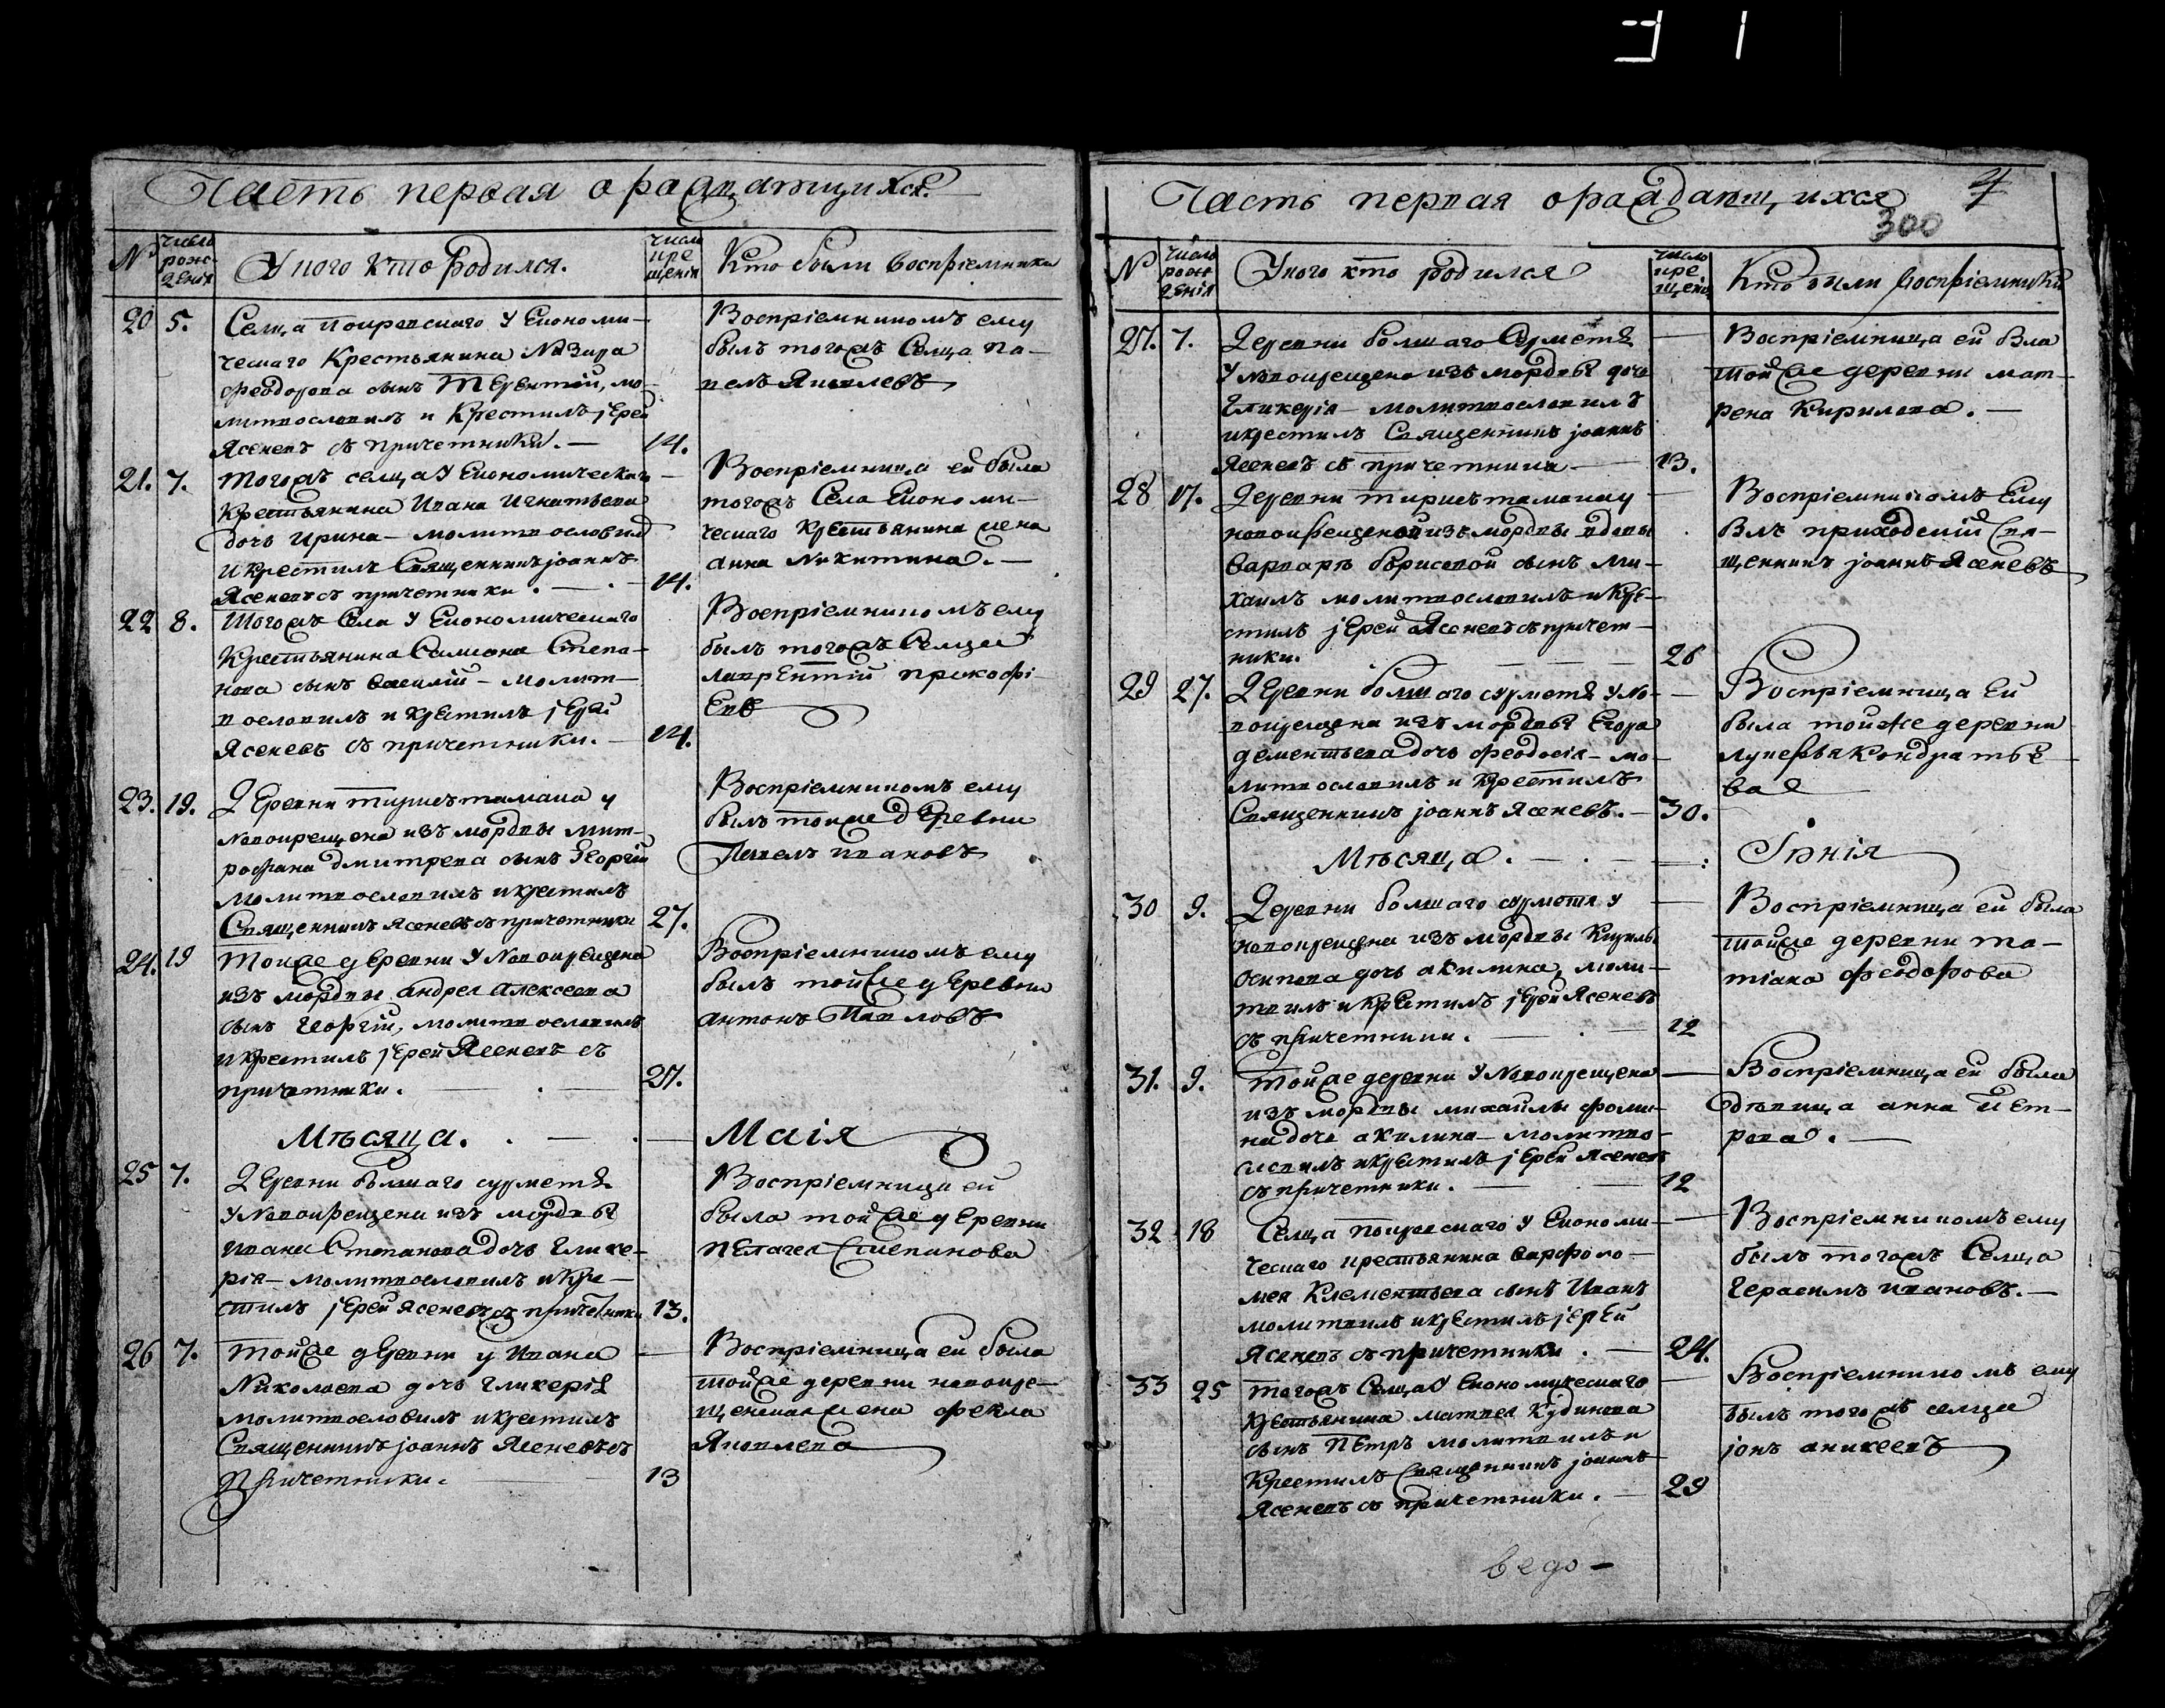 Часть первая о раждающихся.
№
число рождения
У кого кто родился.
число крещения
Кто были восприемники
20
5.
Селца Покровскаго у Економи-
ческаго крестьянина Назара
Феодорова сынъ Терентий, мо-
литвословилъ и крестилъ іерей
Ясеневъ съ причетники. —
14.
Восприемникомъ ему
былъ тогожъ селца Па-
велъ Яковлевъ
21.
7.
Тогожъ селца у Економическаго
крестьянина Ивана Игнатьева
дочь Ирина — молитвословил
и крестилъ Священникъ іоаннъ
Ясеневъ съ причетники. —
14.
Восприемница ей была
тогожъ села Економи-
ческаго крестьянина жена
анна Никитина. —
22
8.
Тогожъ села у Економическаго
крестьянина Самсона Степа-
нова сынъ василій — молит-
вословилъ и крестилъ іерей
Ясеневъ съ причетники. —
14.
Восприемникомъ ему
былъ тогожъ селца
лаврентій прокофі-
евъ
23.
19.
Деревни у
Новокрещена изъ мордвы мит-
рофана дмитрева сынъ Георгій
молитвословилъ и крестилъ
Священникъ Ясеневъ съ причетники
27.
Восприемникомъ ему
былъ тойже деревни
Павелъ ивановъ
24.
19
Тойже деревни у Новокрещена
изъ мордвы андрея алексеева
сынъ георгій, молитвословилъ
и крестилъ іерей Ясеневъ съ
причетники. —
27.
Восприемникомъ ему
былъ тойже деревни
антонъ Павловъ
Мѣсяца. . — . — Маія
25
7.
Деревни болшаго сурметя
у Новокрещена изъ мордвы
ивана Степанова дочь глике-
рія — молитвословилъ и кре-
стилъ іерей Ясеневъ съ причетники
13.
Восприемница ей
была тойже деревни
Пелагея Степанова
26
7.
Тойже деревни у Ивана
Николаева дочь гликерія
молитвословилъ и крестилъ
Священникъ іоаннъ Ясеневъ съ
причетники.
13
Восприемница ей была
тойже деревни новокре-
щенная жена фекла
Яковлева
Часть первая о раждающихся
4
300
№
число рождения
У кого кто родился
число крещено
Кто были восприемники
27.
7.
Деревни болшаго Сурметя
у Новокрещена изъ мордвы дочь
Гликерія — молитвословилъ
и крестилъ Священникъ іоаннъ
Ясеневъ съ причетники —
13.
Восприемница ей была
тойже деревни мат-
рена Кирилова. —
28
17.
Деревни
новокрещеной изъ мордвы вдовы
варвары борисовой сынъ ми-
хаилъ молитвословилъ и кре-
стилъ іерей Ясеневъ съ причет-
ники.
26
Восприемникомъ ему
былъ приходский Свя-
щенникъ іоаннъ Ясеневъ
29
27.
Деревни болшаго сурметя у Но-
вокрещена изъ мордвы Егора
дементьева дочь феодосія — мо-
литвословилъ и крестилъ
Священникъ іоаннъ Ясеневъ. —
30.
Восприемница ей
была тойже деревни
лукерья кондратье-
ва
Мѣсяца. — . — : Іюнія
30
9.
Деревни болшаго сурметя у
новокрещена изъ мордвы Кирилы
осипова дочь акилина, моли-
твилъ и крестилъ іерей Ясеневъ
съ причетники. —
12
Восприемница ей была
тойже деревни та-
тіана феодорова
31.
9.
Тойже деревни у Новокрещена
изъ мордвы михаилы фоми-
на дочь акилина — молитво-
словилъ и крестилъ іерей Ясеневъ
съ причетники. —
12
Восприемница ей была
дѣвица анна пет-
рова. —
32
18
Селца покровскаго у Економи-
ческаго крестьянина варфоло-
мея Клементьева сынъ Иванъ
молитвилъ и крестилъ іерей
Ясеневъ съ причетники. —
24.
Восприемникомъ ему
былъ тогожъ Селца
Герасимъ ивановъ. —
33
25
Тогожъ Селца у Економическаго
крестьянина матвея Кудинова
сынъ Петръ молитвилъ и
Крестилъ Священникъ іоаннъ
Ясеневъ съ причетники. —
29
Восприемникомъ ему
былъ тогожъ селца
іонъ аникеевъ
ведо-